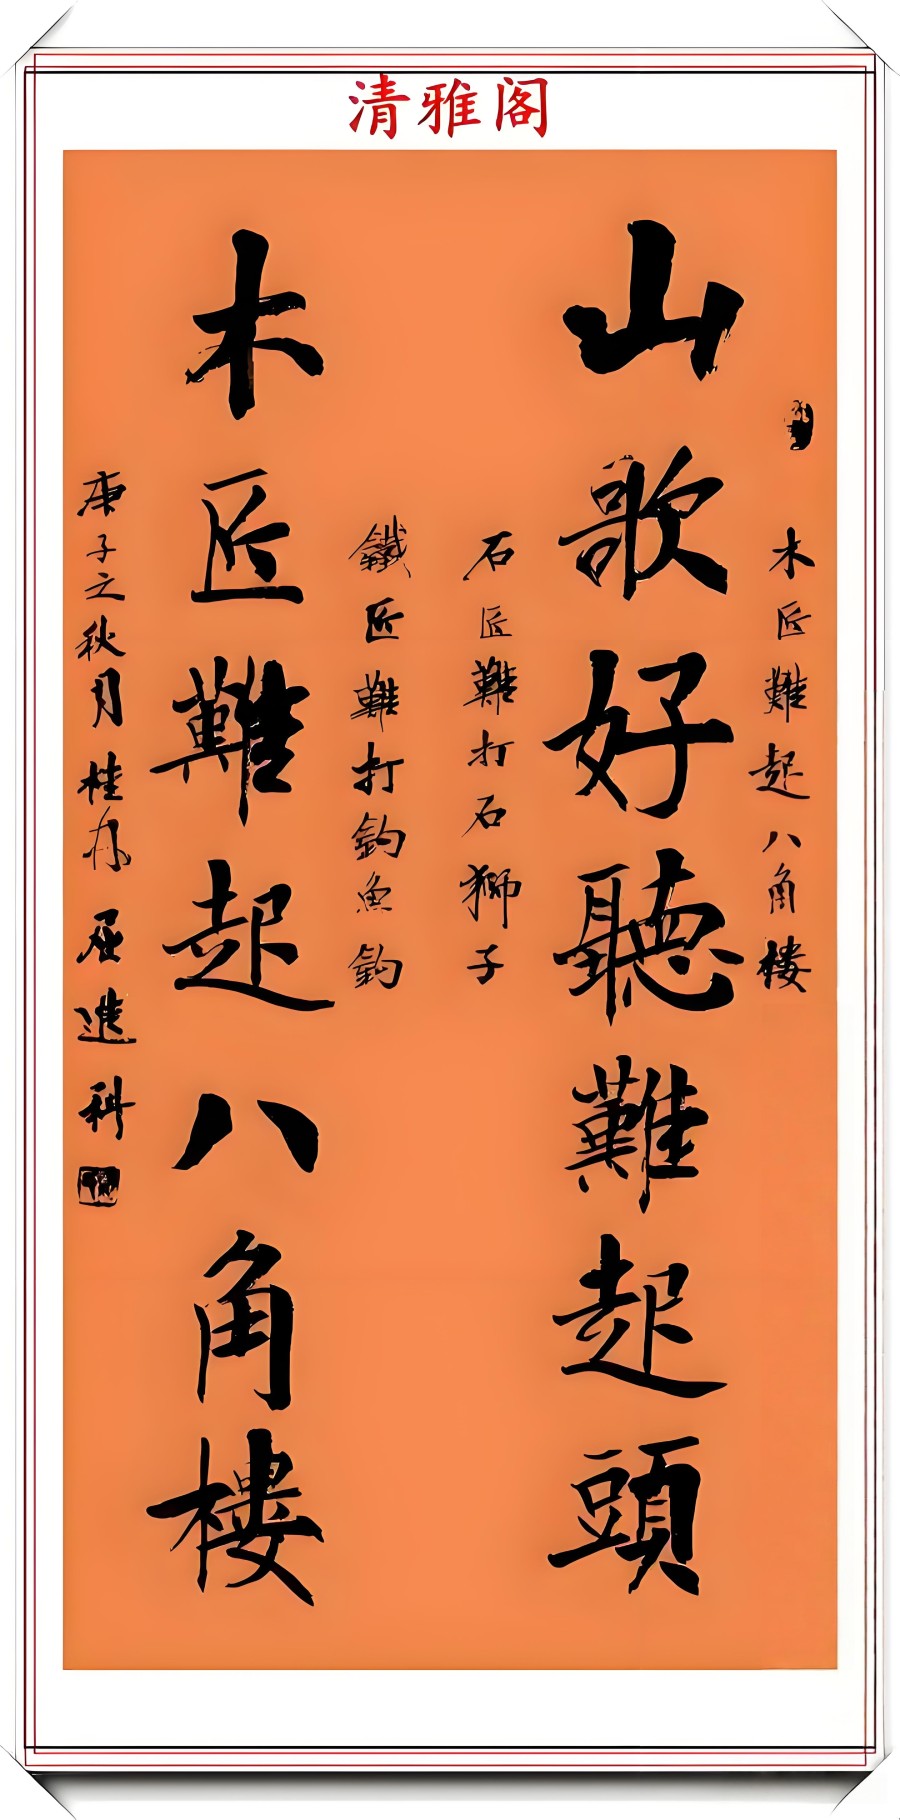 清雅阁
木匠難起八角楼
山歌好聽難起頭
石匠難打石獅子
鐵匠難打鈎魚鈎
木匠難起八角樓
庚子之秋月桂月屈進科